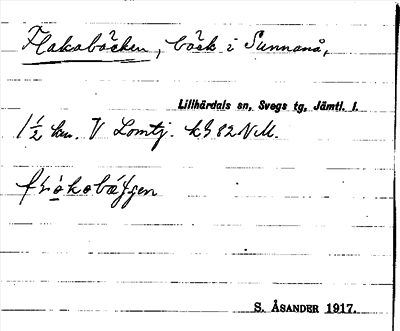 Flakabäcken, bäck i Sunnanå,
Lillhärdals sn, Svegs tg, Jämtl. l.
1½ km. V Lomtj.
S. ÅSANDER 1917.